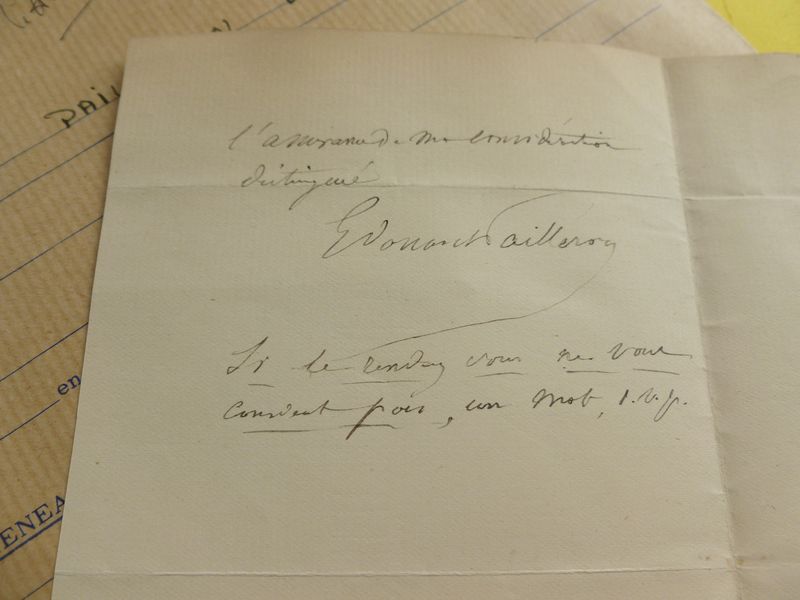 PAIL
l'assurance de ma considération
distinguée
Edouard Pailleron
Si le rendez vous ne vous
convient pas, un mot, s.v.p.
en
ENEA